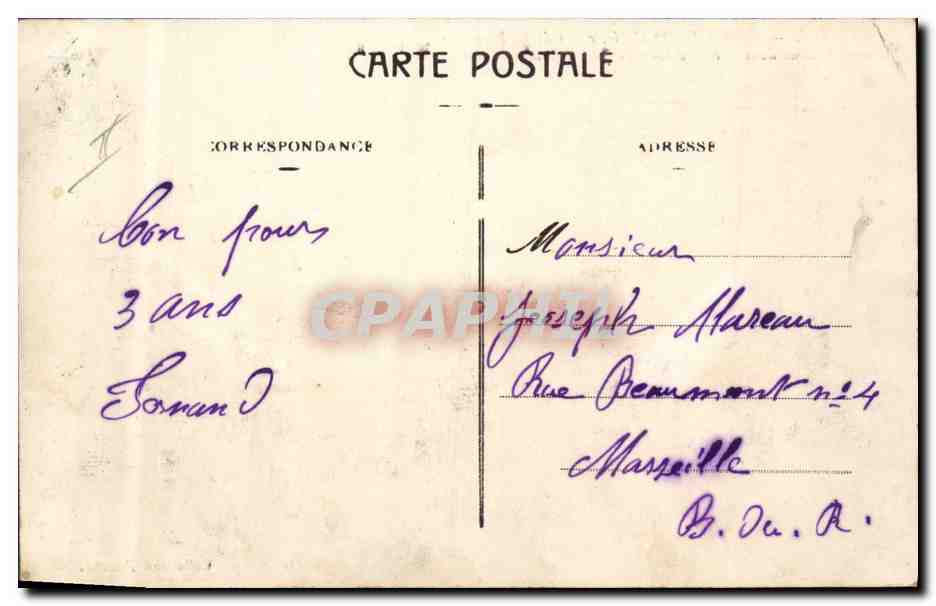 CARTE POSTALE
CORRESPONDANCE
ADRESSE
Bon pour
3 ans
Fernand
Monsieur
Joseph Mareau
Rue Beaumont n° 4
Marseille
B. du. R.
CPAPHIL